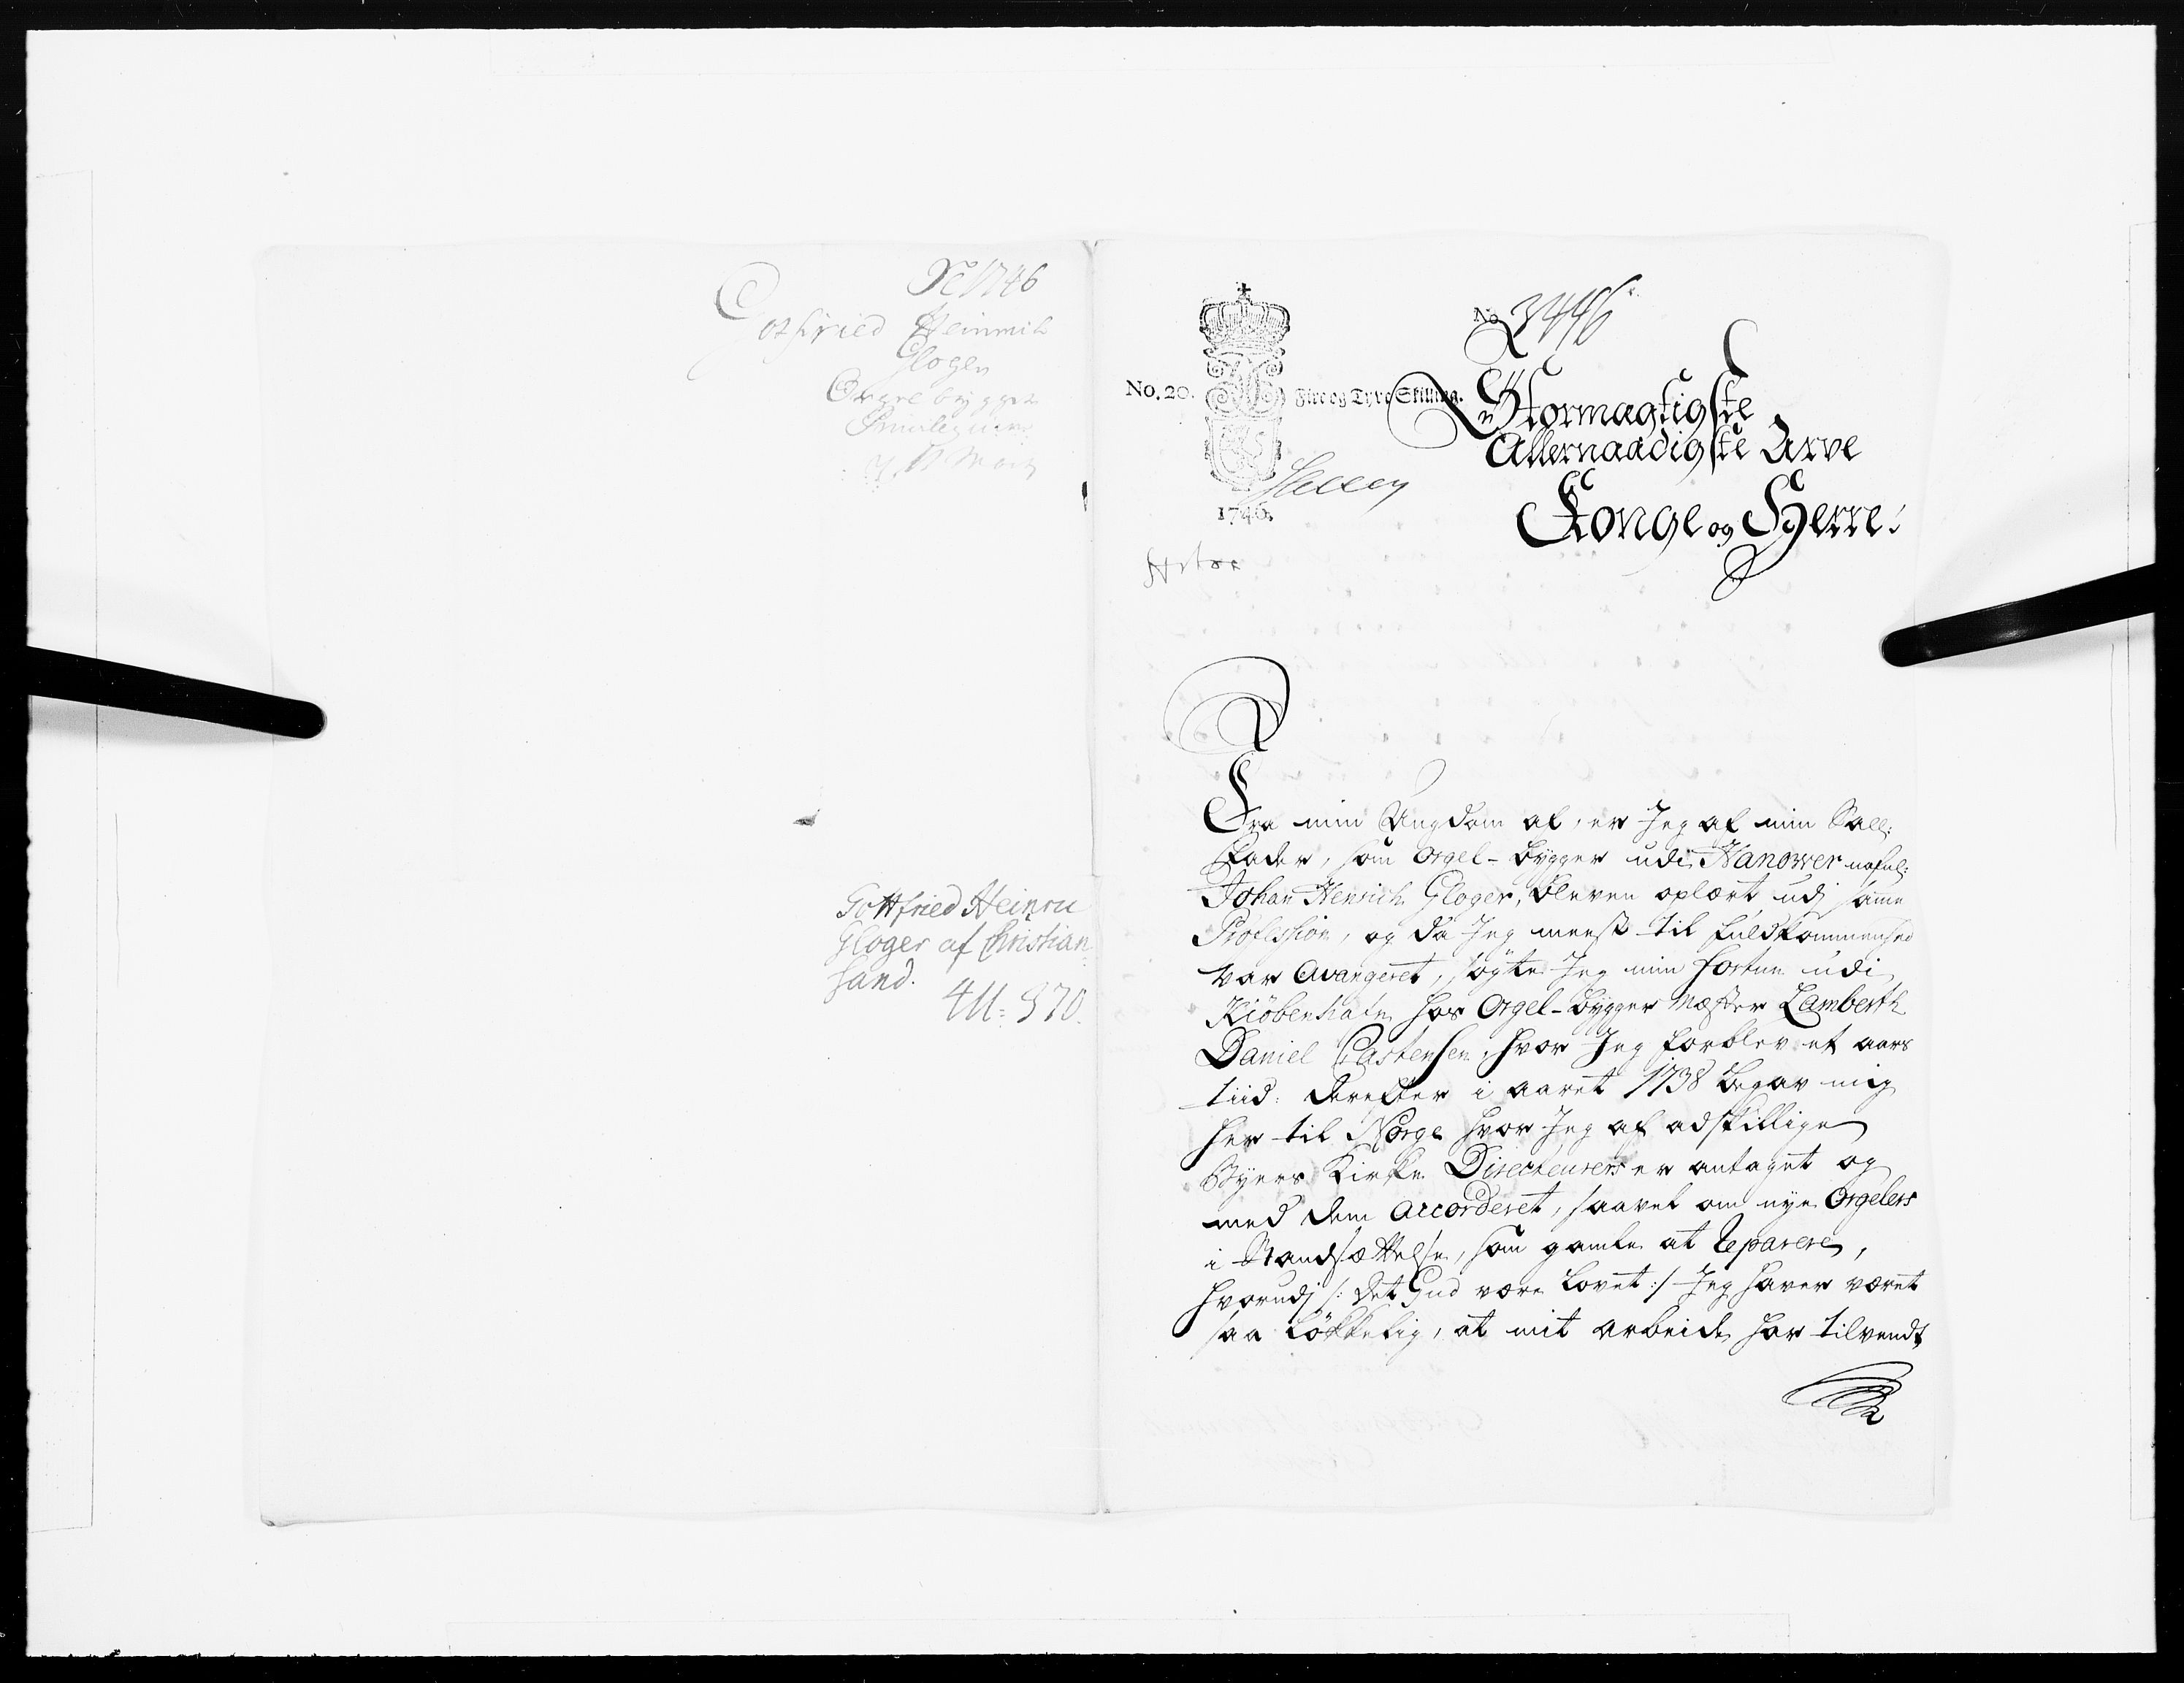 1746
Gothfried Heinrich
Gloger
Orgelbygger
Privilegium
Gottfried Heinric
Gloger af Christian
sand.
411: 370.
No. 3446
No. 20. Fire og Tyve Skilling.
1746.
Stormægtigste
Allernaadigste Arve
Konge og Herre!
Fra min Ungdom af, er Jeg af min Sall:
Fader, som Orgel-bygger udi Hanover nafnl:
Johan Henrich Gloger, bleven oplært udj samme
Profession, og da Jeg meest til fuldkommenhed
var Avangeret, søgte Jeg min fortun udi
Kiöbenhafn hos Orgel-bygger Mæster Lamberth
Daniel Castensen, hvor Jeg forblev et aars
tiid: derefter i aaret 1738 begav mig
her til Norge hvor Jeg af adskillige
Byers Kirke Directeurers er antaget og
med dem accorderet, saavel om nye Orgelers
i Standsættelse, som gamle at reparere,
hvorudj /: det Gud være lovet :/ Jeg haver været
saa løkkelig, at mit arbeide har tilvendt